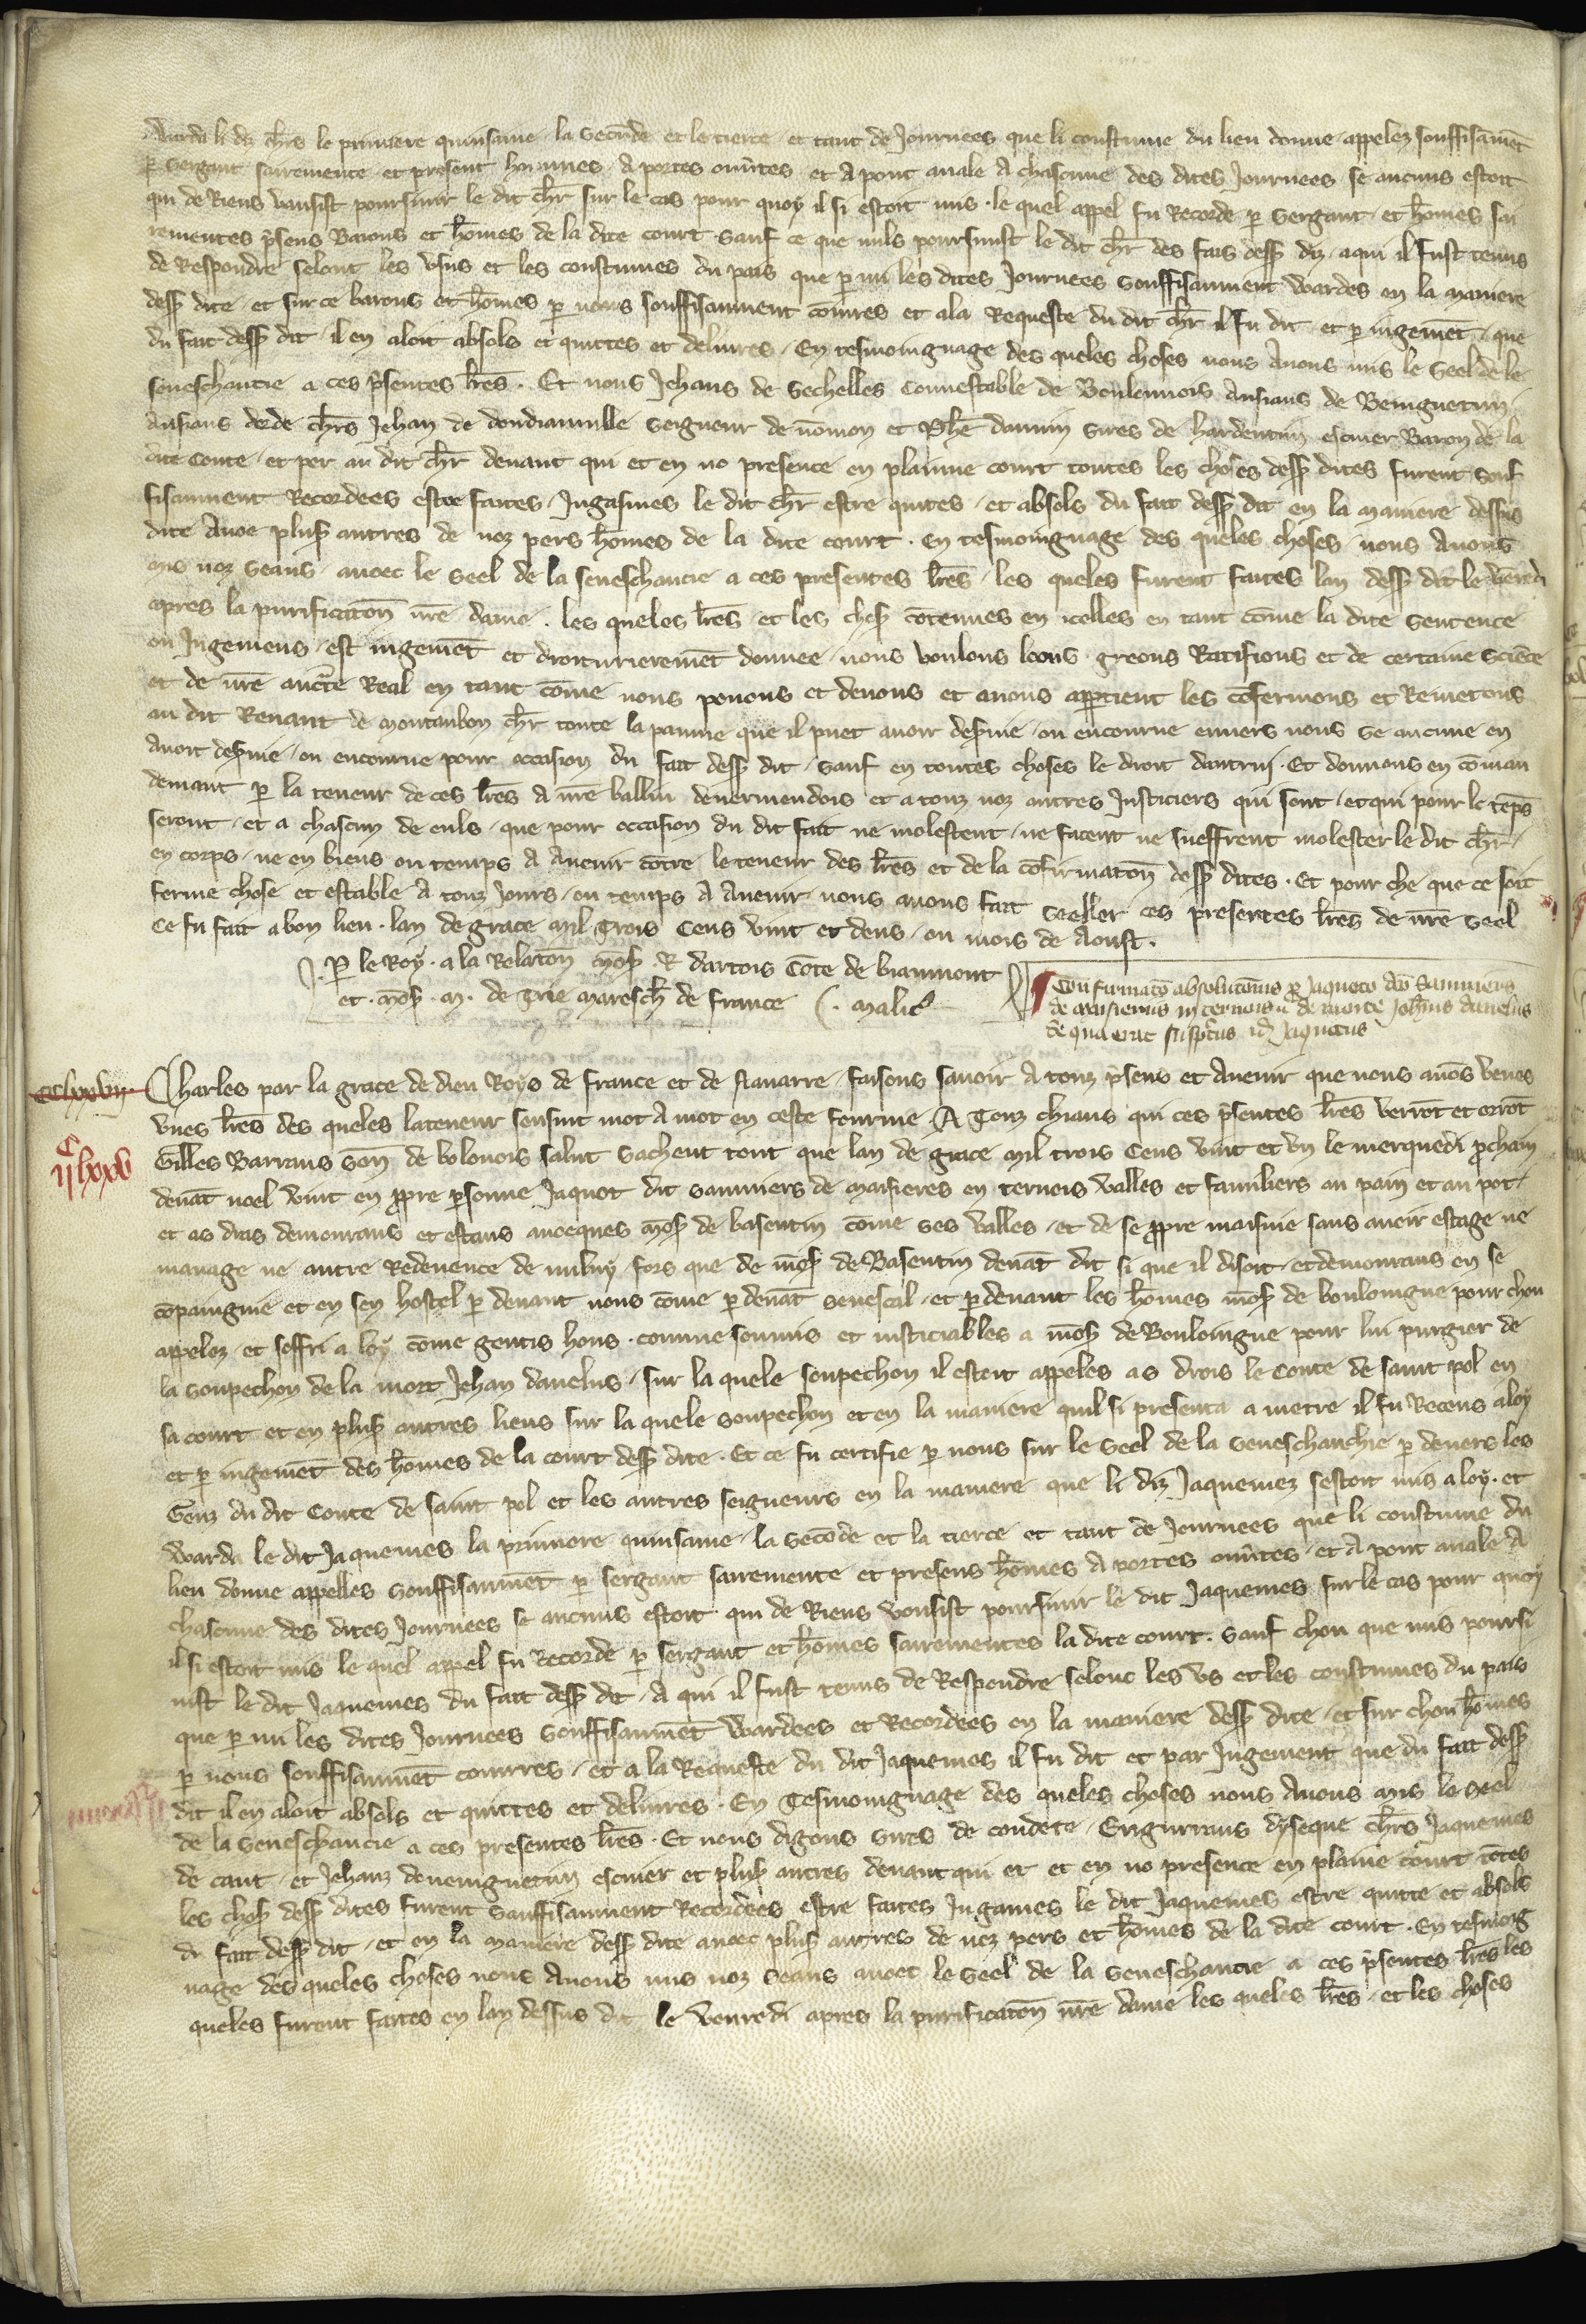 Warda li diz chrs le premiere quinsaine la seconde et le tierce et tant de Journees que li coustume du lieu donne appelez souffisaument
p sergant sairemente et present hommes a portes ouvtes et a pont avale a chascune des dites Journees se aucuns estoit
qui de Riens vausist poursuir le dit chr sur le cas pour quoy il si estoit mis le quel appel fu Recorde p sergant et homes sai
rementes psens Barons et homes de la dite court sauf ce que nuls poursuist le dit chr des fais dess diz a qui il fust tenus
de Respondre selont les usus et les coustumes du pais que p mi les dites Journees souffisaument Wardes en la maniere
dess dite et sur ce barons et homes p nous souffisaument coniures et a la Requeste du dit chr il fu dit et p iugemet que
du fait dess dit il en aloit absols et quittes et delivres En tesmoingnage des queles choses nous Avons mis le seel de le
seneschaucie a ces psentes lres Et nous Jehans de Sechelles connestable de Boulenois Ansiaus de Beinguetun
Ansiaus dorde chrs Jehan de doudiauville seigneur de nomon et Phe danuin sires de hardentun escuier Baron de la
dite Conte et per au dit chr devant qui et en no presence en plainne court toutes les choses dess dites furent souf
fisaument Recordees estre faites Jugasmes le dit chr estre quites et absols du fait dess dit en la maniere dessus
dite Avoec plus autres de noz pers homes de la dite court En tesmoingnage des queles choses nous Avons
mis noz seaus avoec le seel de la seneschaucie a ces presentes lres les queles furent faites lan dess dit le venredi
apres la purificaton nre dame les queles lres et les choses cotenues en icelles en tant come la dite sentence
ou Jugemens est iugemet et droiturieremet donnee nous voulons loons greons Ratifions et de certaine science
et de nre aucte Real en tant come nous povons et devons et a nous apptient les cofermons et Remetons
au dit Renaut de montaubon chr toute la painne que il puet avoir deservie ou encourue envers nous se aucune en
Avoit deservie ou encourue pour occasion du fait dess dit sauf en toutes choses le droit dautrui Et donnons en coman
demant p la teneur de ces lres a nre bailliu de vermendois et a touz noz autres Justiciers qui sont et qui pour le teps
seront et a chascun de euls que pour occasion du dit fait ne molestent ne facent ne sueffrent molester le dit chr
en corps ne en biens ou temps A Avenir cotre le teneur des lres et de la cofirmaton dess dites Et pour che que ce soit
ferme chose et estable A touz Jours ou temps A Avenir nous avons fait seeller ces presentes lres de nre seel
Ce fu fait a bon lieu lan de grace mil trois cens vint et deus ou mois de Aoust
P le Roy a la Relaton mos R dartois Cote de biaumont
et mos m de trie maresch de france malic
Confirmato absolutonis p Jaqueto dco Samniers
de maisieris in ternois de morte Johis davelus
de qua erat suspctus id Jaquetus
cclxxvii
iic lxxv
Charles par la grace de dieu Roys de france et de Navarre faisons savoir A touz psens et Avenir que nous avos veues
unes lres des queles la teneur sensuit mot A mot en ceste fourme A Touz chiaus qui ces psentes lres verrot et orrot
Gilles Barraus Sen de bolonois salut Sachent tout que lan de grace mil trois Cens vint et un le merquedi pchain
devat noel vint en ppre psonne Jaquot dit samniers de maisieres en ternois valles et familiers au pain et au pot
et as dras demourans et estans avecques mos de basentin come ses valles et de se ppre maisnie sans aveir estage ne
manage ne autre Redevence de nuluy fors que de mos de Basentin devat dit si que il disoit et demourans en se
copaingnie et en sen hostel p devant nous come p devat senescal et p devant les homes mos de bouloingne pour chou
appelez et soffri a loy come gentis hons comme soumis et iusticiables a mos de Bouloingne pour lui purgier de
la soupechon de la mort Jehan davelus sur la quele soupechon il estoit appeles as drois le Conte de saint pol en
sa court et en plus autres lieus sur la quele soupechon et en la maniere quil si presenta a metre il fu Receus a loy
et p iugemet des homes de la court dess dite Et ce fu certifie p nous sur le seel de la seneschauchie p devers les
Genz du dit Conte de saint pol et les autres seigneurs en la maniere que li diz Jaquemez sestoit mis a loy et
warda le dit Jaquemes la premiere quinsaine la secode et la tierce et tant de Journees que li coustume du
lieu donne appelles souffisaumet p sergant sairemente et presens homes A portes ouvtes et A pont avale A
chascune des dites Journees se aucuns estoit qui de Riens vousist poursuir le dit Jaquemes sur le cas pour quoy
il si estoit mis le quel appel fu Recorde p sergant et homes sairementes la dite court sauf chou que nus poursi
uist le dit Jaquemes du fait dess dit A qui il fust tenus de Respondre selonc les us et les coustumes du pais
que p mi les dites Journees souffisaumet Wardees et Recordees en la maniere dess dite et sur chou homes
p nous souffisaumet coniurres et a la Requeste du dit Jaquemes il fu dit et par Jugement que du fait dess
dit il en aloit absols et quittes et delivres En Tesmoingnage des queles choses nous Avons mis le seel
de la seneschaucie a ces presentes lres Et nous digons sires de condete Engurrans dyseque chrs Jaquemes
de caut et Jehanz de veninguetun escuier et plus autres devant qui et et en no presence en plaine court totes
les choses dess dites furent sauffisaument Recordees estre faites Jugames le dit Jaquemes estre quitte et absols
du fait dess dit et en la maniere dess dite avoec plus autres de noz pers et homes de la dite court En tesmoig
nage des queles choses nous Avons mis noz seaus avoec le seel de la seneschaucie a ces psentes lres les
queles furent faites en lan dessus dit le venredi apres la purificaton nre dame les queles lres et les choses